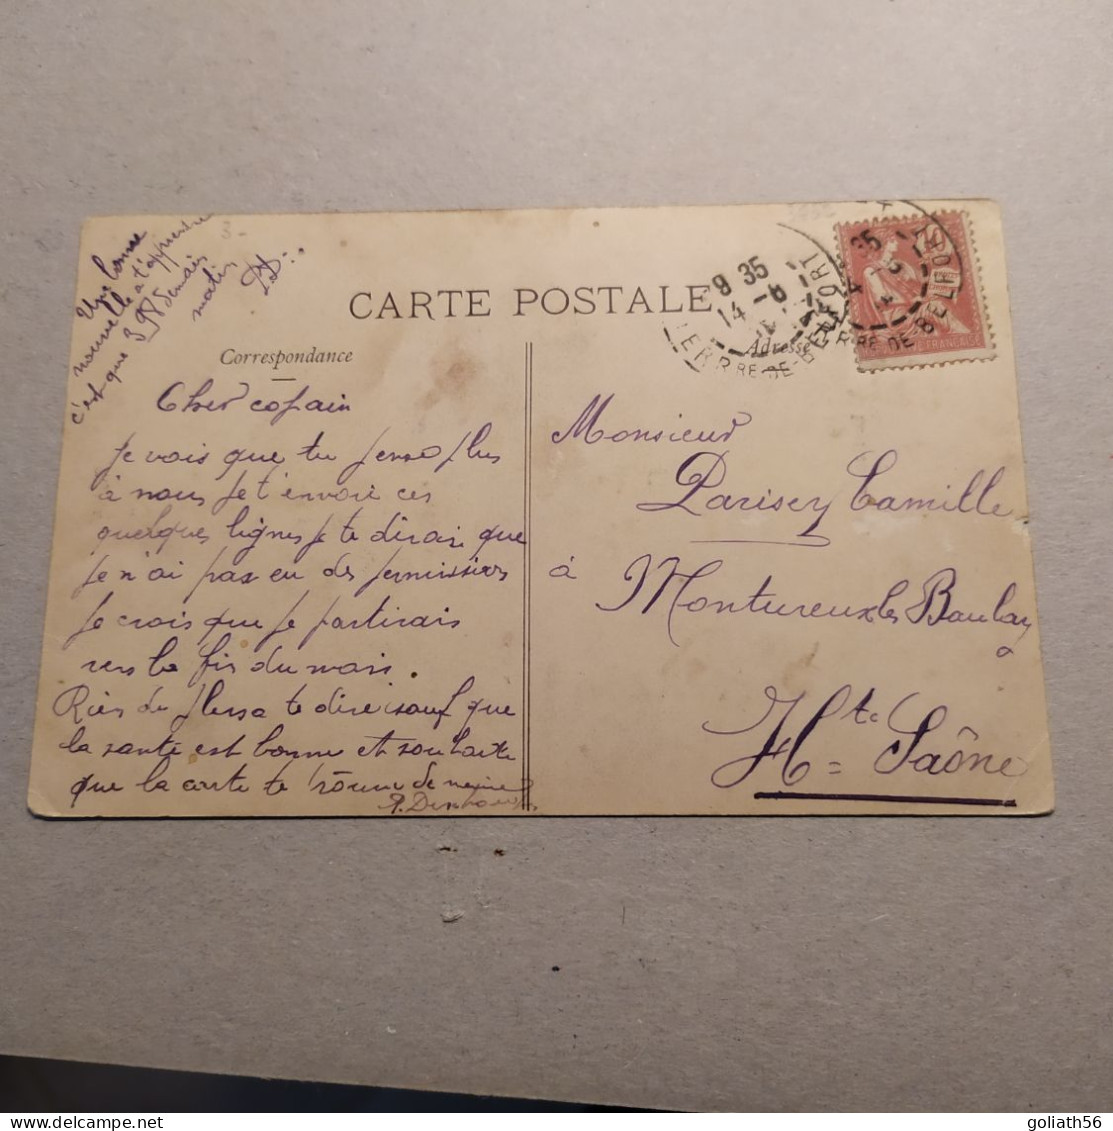 Une bonne
nouvelle a t'apprendre
c'est que 398 demain
matin
CARTE POSTALE
Correspondance
Adresse
Cher copain
Je vois que tu pense plus
à nous Je t'envoie ces
quelques lignes Je te dirai que
Je n'ai pas eu des permissions
Je crois que Je partirais
vers la fin du mois.
Rien de plus a te dire sauf que
la santé est bonne et souhaite
que la carte te trouve de meme
Monsieur
Parisey Camille
à Montureux les Baulay
Hte = Saône
9 35
14 - 6
TERRRE-DE-BELFORT
35
RE DE BELFORT
10
FRANÇAISE
goliath56